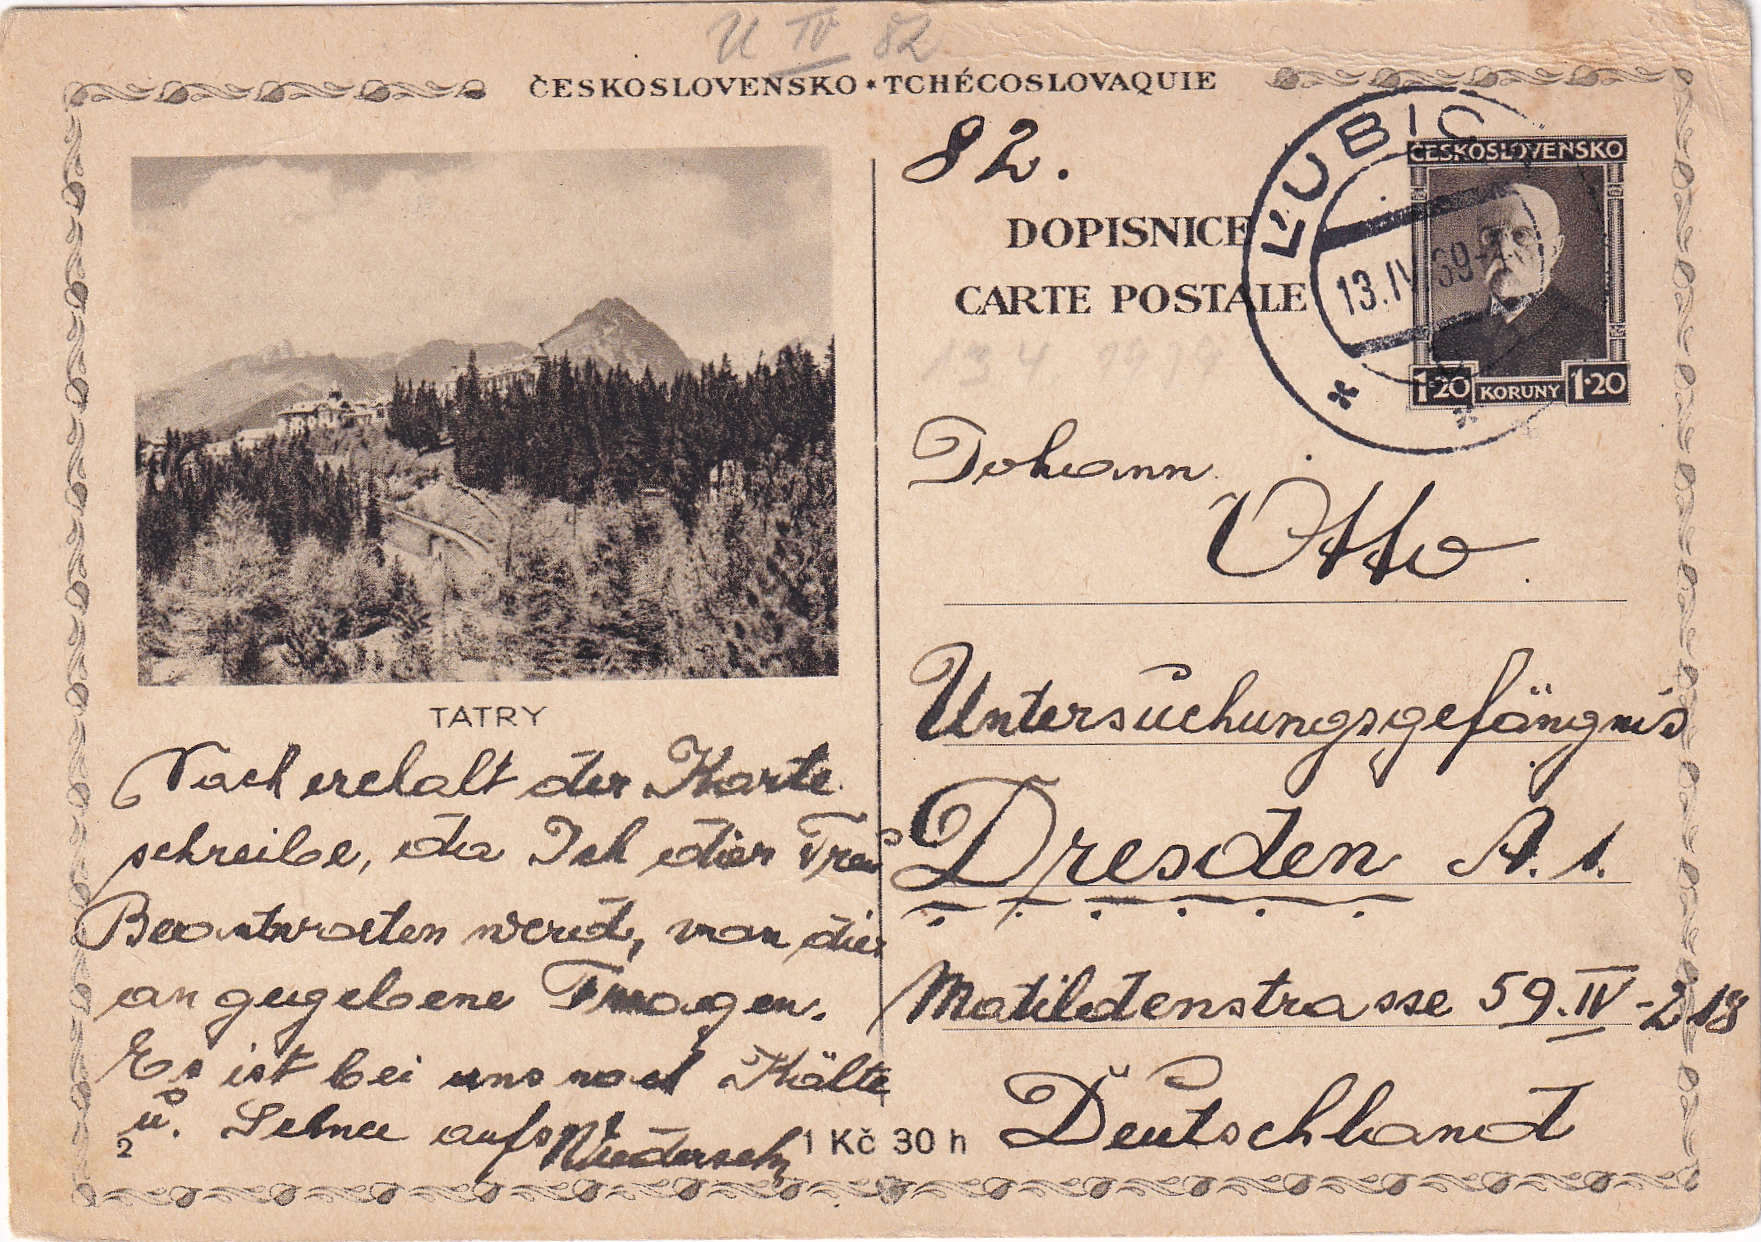 U IV 82
ČESKOSLOVENSKO * TCHÉCOSLOVAQUIE
82.
DOPISNICE
CARTE POSTALE
ĽUBICA
13.IV.39-18
ČESKOSLOVENSKO
1·20 KORUNY 1·20
13 4. 1939
TATRY
Johann
Otto
Untersuchungsgefängnis
Dresden A. 1.
Matildenstrasse 59. IV - 218
Deutschland
Nach erchalt der Karte
schreibe, da Ich dier
Beantworten werd, von dier
angegebene Fragen.
Es ist bei uns noch Kälte
u. Schnee aufs
Wiedersehn
2
1 Kč 30 h